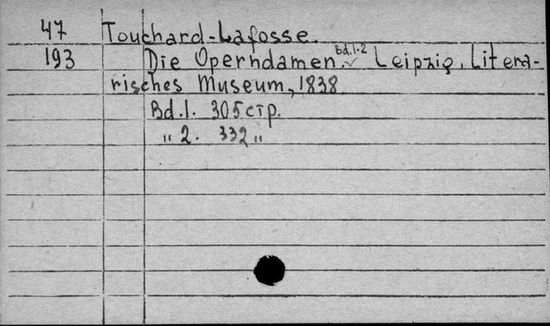 47 Touchard-Lafosse.
193 Die Operndamen. Bd.1-2 Leipzig, Litera-
risches Museum, 1838
Bd.1. 305 стр.
„ 2. 332 „